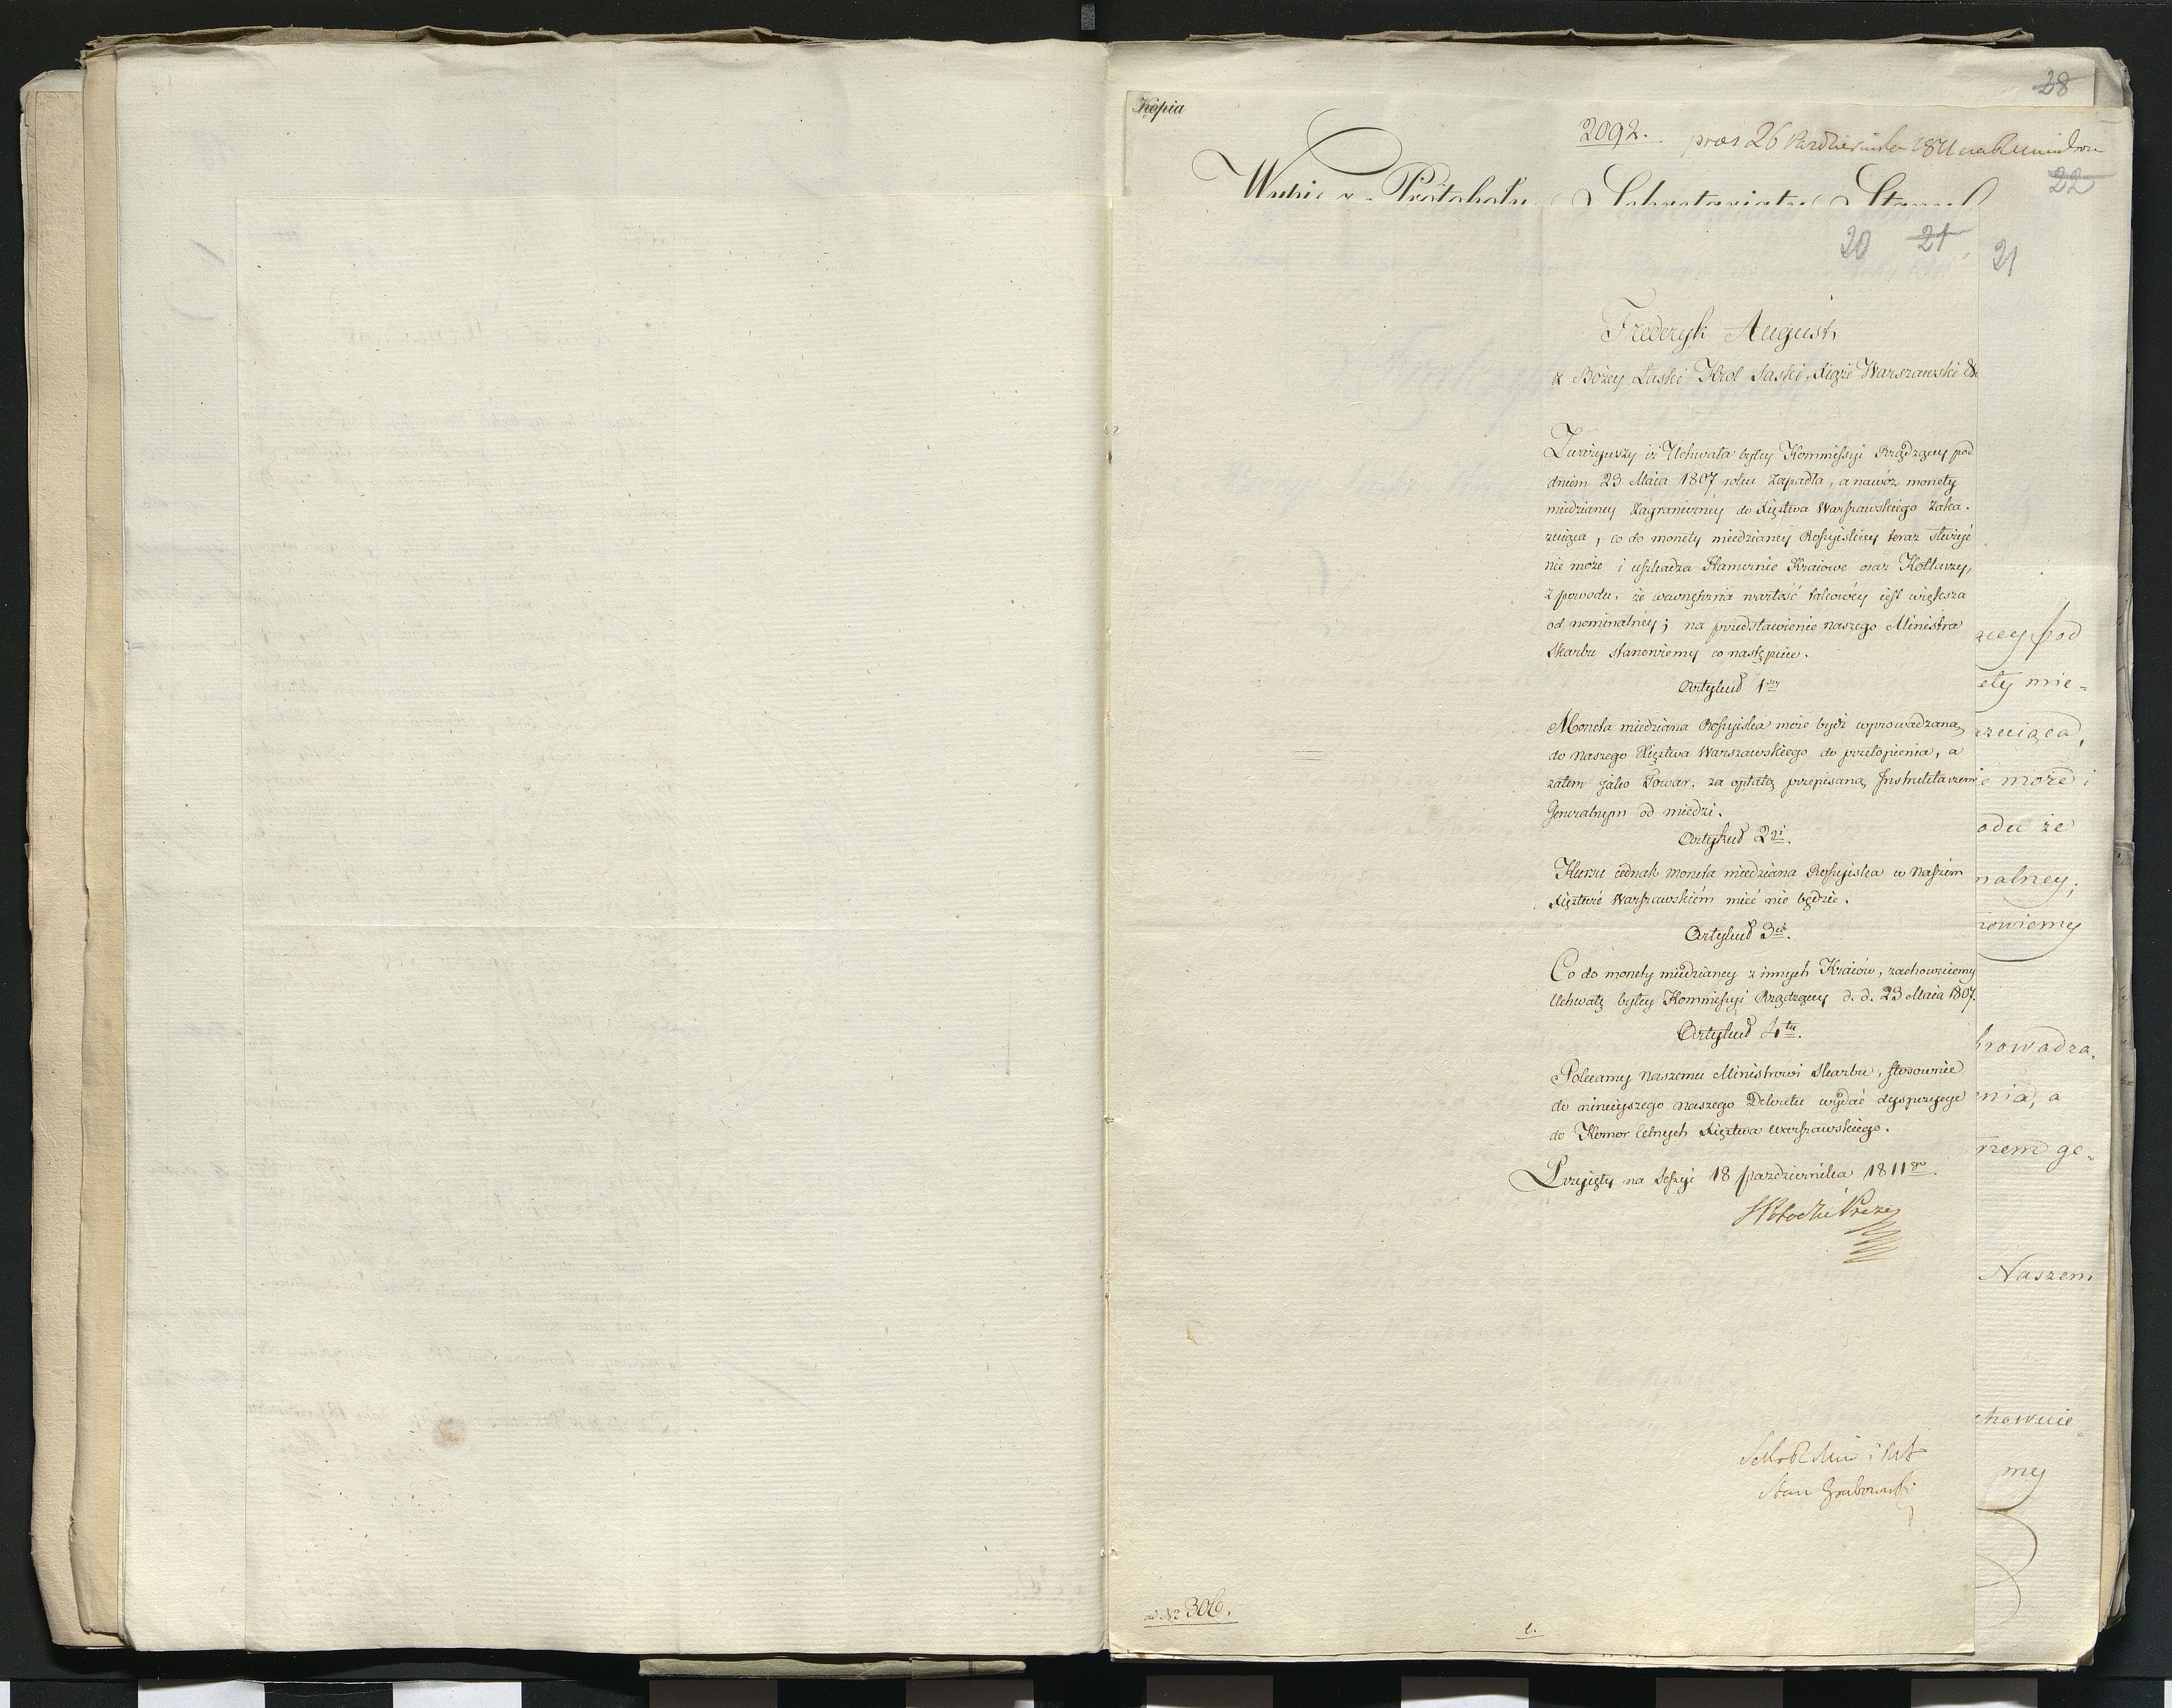 28
Kopia
2092. pras 26 Października 1811
22
Wypis z Protokołu Sekretariatu Stanu
20 21 21
Frederyk August
z Bożey Łaski Krol Saski, Xiąże Warszawski &c
Zważywszy iż Uchwała byłey Kommissyi Rządzącey pod
dniem 23 Maia 1807 roku zapadła, a nawóz monety
miedzianey zagraniczney do Xięztwa Warszawskiego zaka-
zuiąca, co do monety miedzianey Rossyiskiey teraz służyć
nie może i uszkadza Hamernie Kraiowe oraz Kotlarzy,
z powodu, że wewnętrzna wartość takowéy iest większa
od nominalney; na przedstawienie naszego Ministra
Skarbu stanowiemy co następuie.
Artykuł 1szy
Moneta miedziana Rossyiska może bydź wprowadzaną
do naszego Xięztwa Warszawskiego do przetopienia, a
zatem jako Towar, za opłatą przepisaną Instruktarzem
Generalnym od miedzi.
Artykuł 2gi.
Kursu iednak moneta miedziana Rossyiska w Naszém
Xięztwie Warszawskiém mieć nie będzie.
Artykuł 3ci.
Co do monety miedzianey z innych Kraiów, zachowuiemy
Uchwałę byłey Kommissyi Rządzącey d. d. 23 Maia 1807.
Artykuł 4ty.
Polecamy Naszemu Ministrowi Skarbu, stosownie
do ninieyszego naszego Dekretu wydać dyspozycye
do Komor Celnych Xięztwa Warszawskiego.
Przyięty na Sessyi 18 października 1811go.
Potocki Prezes
Stan Grabowski
ad No 306.
ącey pod
ety mie-
zuiąca,
ie może i
odu że
nalney;
nowiemy
prowadza-
enia, a
rzem ge-
Naszem
chowuie-
my